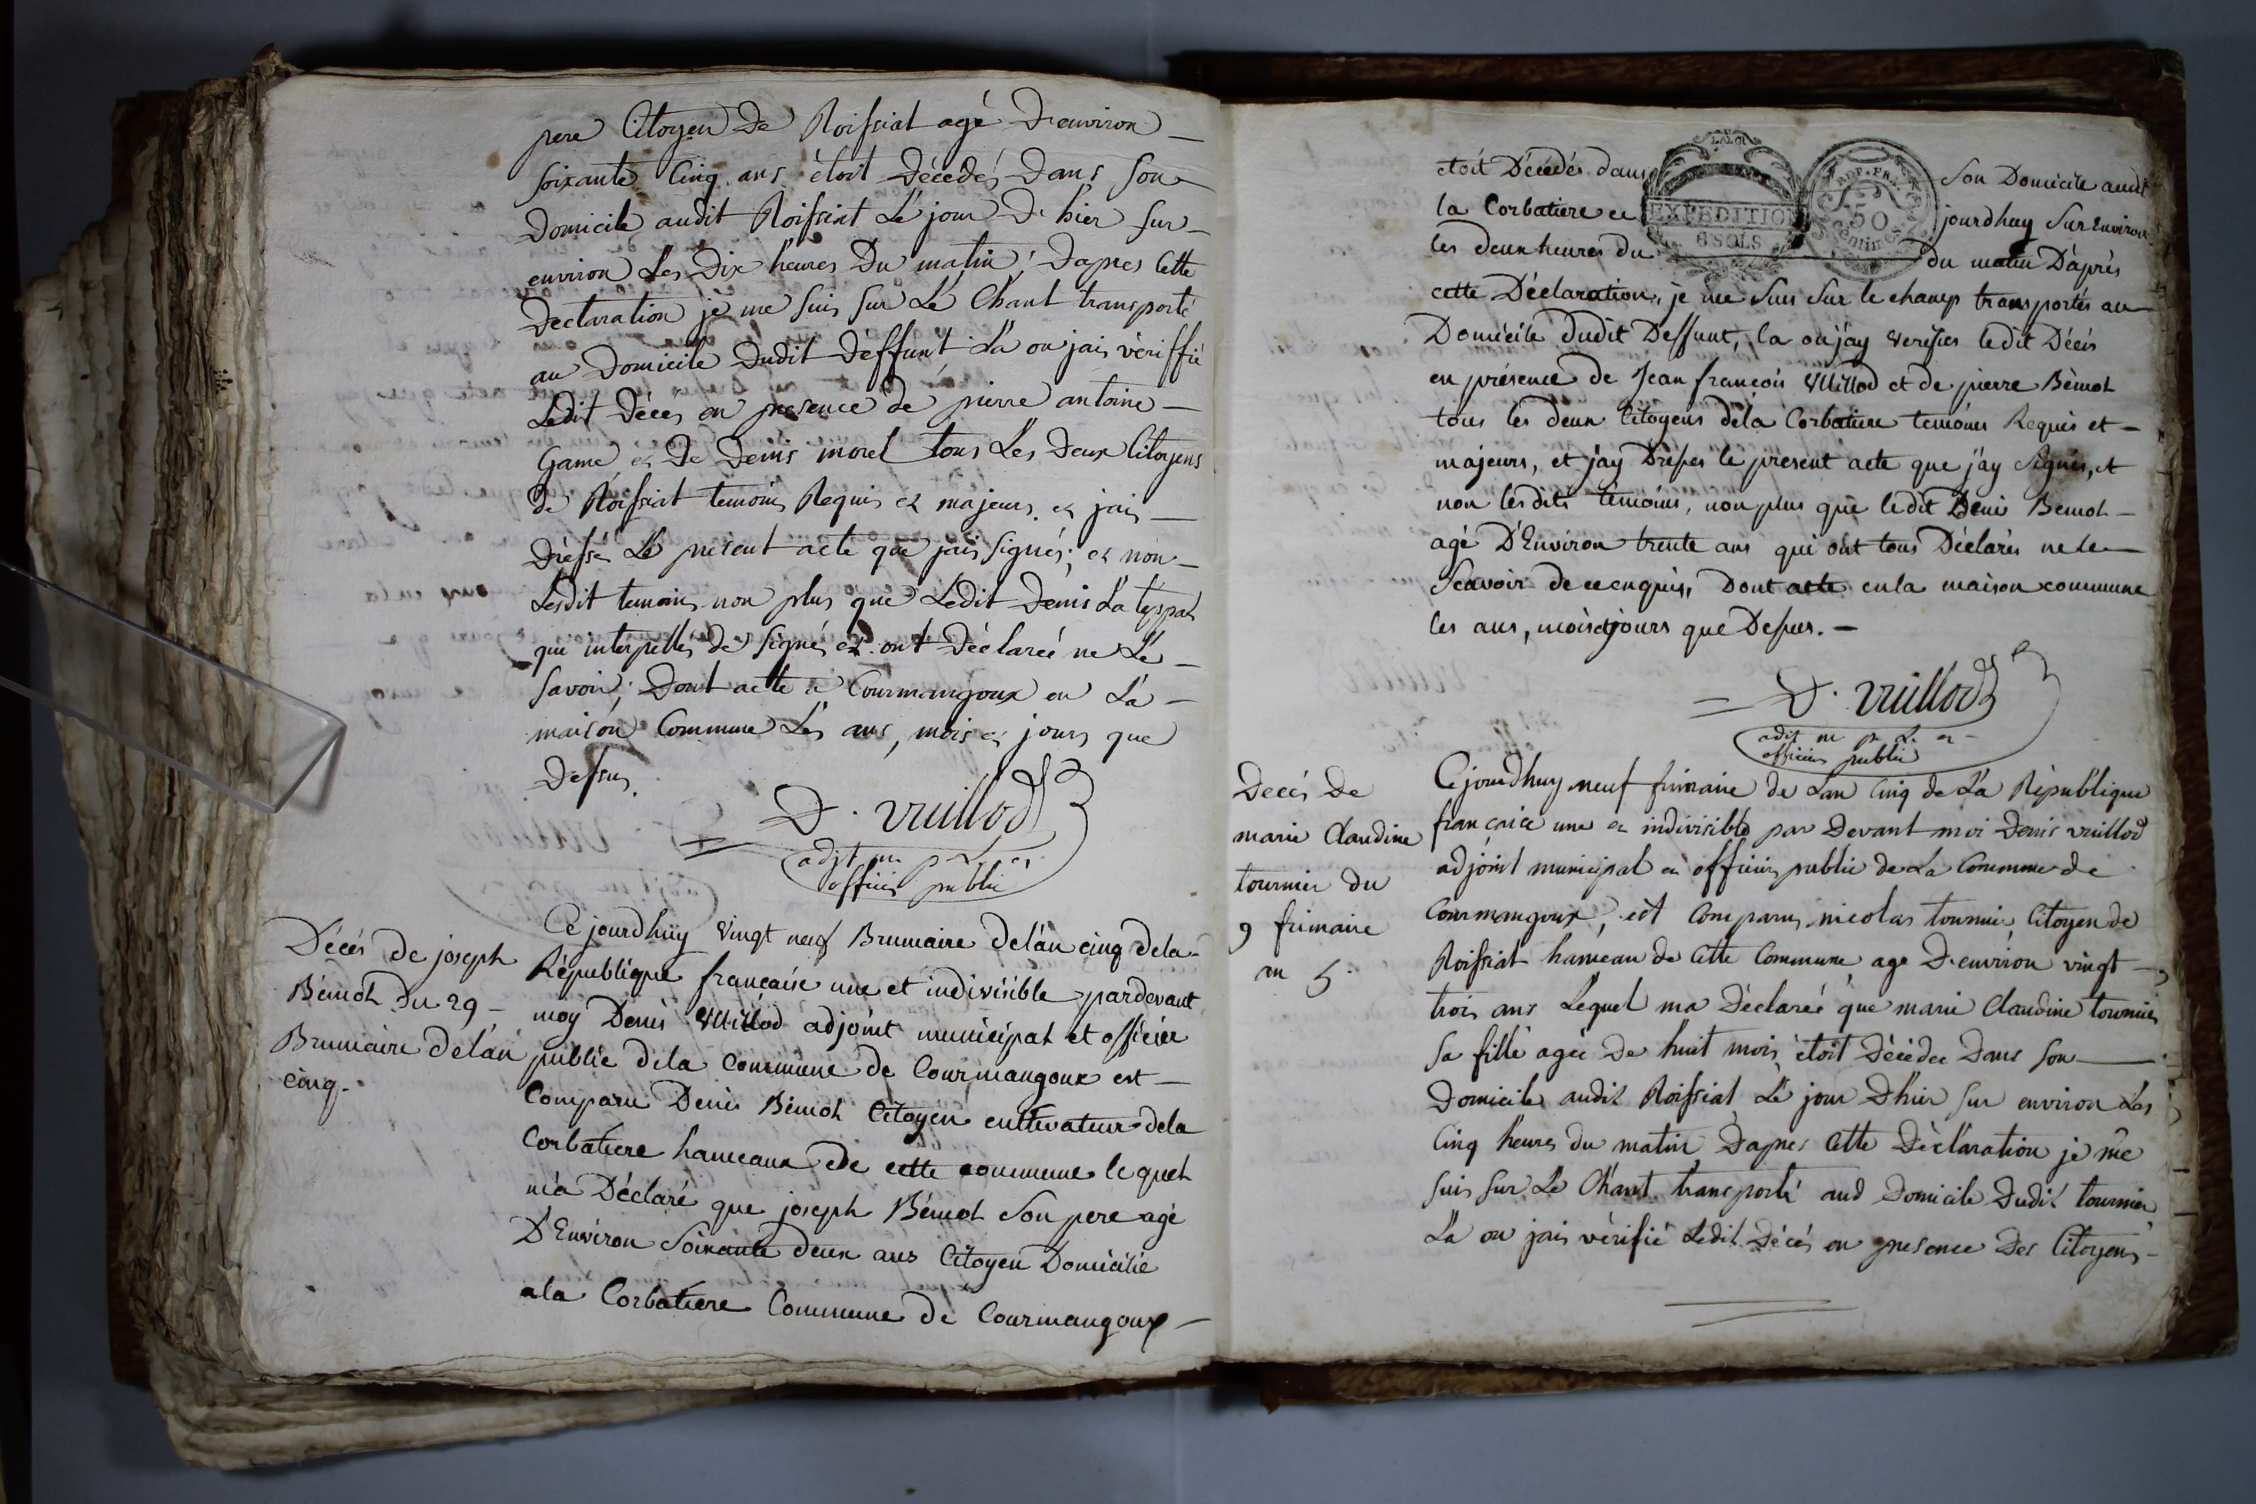 pere Citoyen de Roissiat agé d'environ —
soixante Cinq ans étoit décedés dans son
domicile audit Roissiat Lé jour d'hier sur —
environ Les Dix heures Du matin; Dapres Cette
Declaration jé me suis sur Lé Chant transporté
au Domicile dudit deffunt La ou jais vériffié
Ledit déces en presence de pierre antoine —
Game et De Denis morel tous Les Deux Citoyens
de Roissiat temoins Requis et majeurs. et jais —
dressé Lé present acte que jais signés; et non —
Lesdit temoins non plus que Ledit Denis La
qui interpellés de signés et ont Déclareé ne Lé —
savoir; Dont acte a Courmangoux en La —
maison Commune Lés ans, mois et jours que
Dessus.
D. vuillod
adjt m p L et
officier public
Décés de joseph
Bémot du 29 —
Brumaire delan
cinq.
Ce jourdhuy vingt neuf Brumaire delan cinq dela
République francaise une et indivisible pardevant
moy Denis Vuillod adjoint municipal et officier
public dela commune de Courmangoux est —
Comparu Denis Bémot Citoyen cultivateur dela
Corbatiere hameaux de cette commune lequel
m'a Déclaré que joseph Bémot Son pere agé
D'Environ Soixante deux ans Citoyen Domicilié
ala Corbatiere Commune de Courmangoux —
LA LOI
EXPEDITION
6 SOLS
REP. FRA.
50
Centimes
étoit Décédés dans Son Domicile audit
la Corbatiere ce jourdhuy Sur Environ
les deux heures du du matin D'aprés
cette Déclaration, je me Suis Sur le champ transportés au
Domicile dudit Deffunt, la ou jay verifiés ledit Décés
en présence de Jean francois Vuillod et de pierre Bémot
tous les deux Citoyens déla Corbatiere temoins Requis et —
majeurs, et jay Dressés le present acte que j'ay Signés, et
non lesdits témoins, non plus que ledit Denis Bemot —
agé D'Environ trente ans qui ont tous Déclarés ne le —
Scavoir de ce enquis, Dont acte en la maison commune
les ans, mois et jours que Dessus. —
D. vuillod
adjt m p L et
officier public
Decés De
marie Claudine
tournier du
9 frimaire
an 5.
Cejourdhuy neuf frimaire de Lan Cinq de La République
francaice une et indivisible par Devant moi Denis vuillod
adjoint municipal et officier public de La Commune de
Courmangoux, est Comparu nicolas tournier Citoyen de
Roissiat hameau de Cette Commune agé D'environ vingt —
trois ans Lequel ma Déclareé que marie Claudine tournier
sa fille ageé De huit mois étoit Décédee Dans son —
Domicile audit Roissiat Lé jour Dhier sur environ Les
Cinq heures du matin Dapres Cette Déclaration jé me
suis sur Le Chant transporté aud Domicile Dudit tournier
La ou jais vérifié Ledit Décés en presence Des Citoyens —